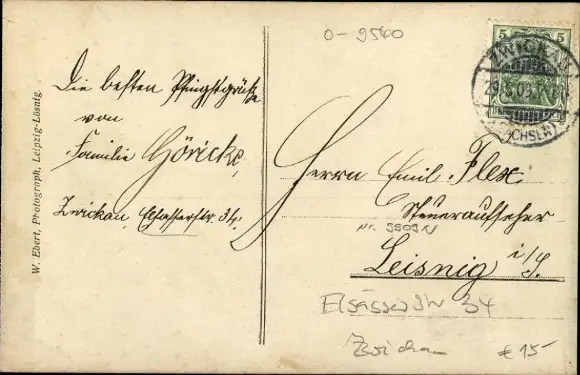 o-9540
5 5
ZWICKAU
29.5.09
(SACHSEN)
Die besten Pfingstgrüße
von
Familie Göricke
Zwickau, Elsasserstr. 34.
Herrn Emil Flex
Steueraufseher
Nr. 3503N
Leisnig i/S.
Elsässerstr 34
Zwickau
€ 15-
W. Ebert, Photograph, Leipzig-Lösnig.